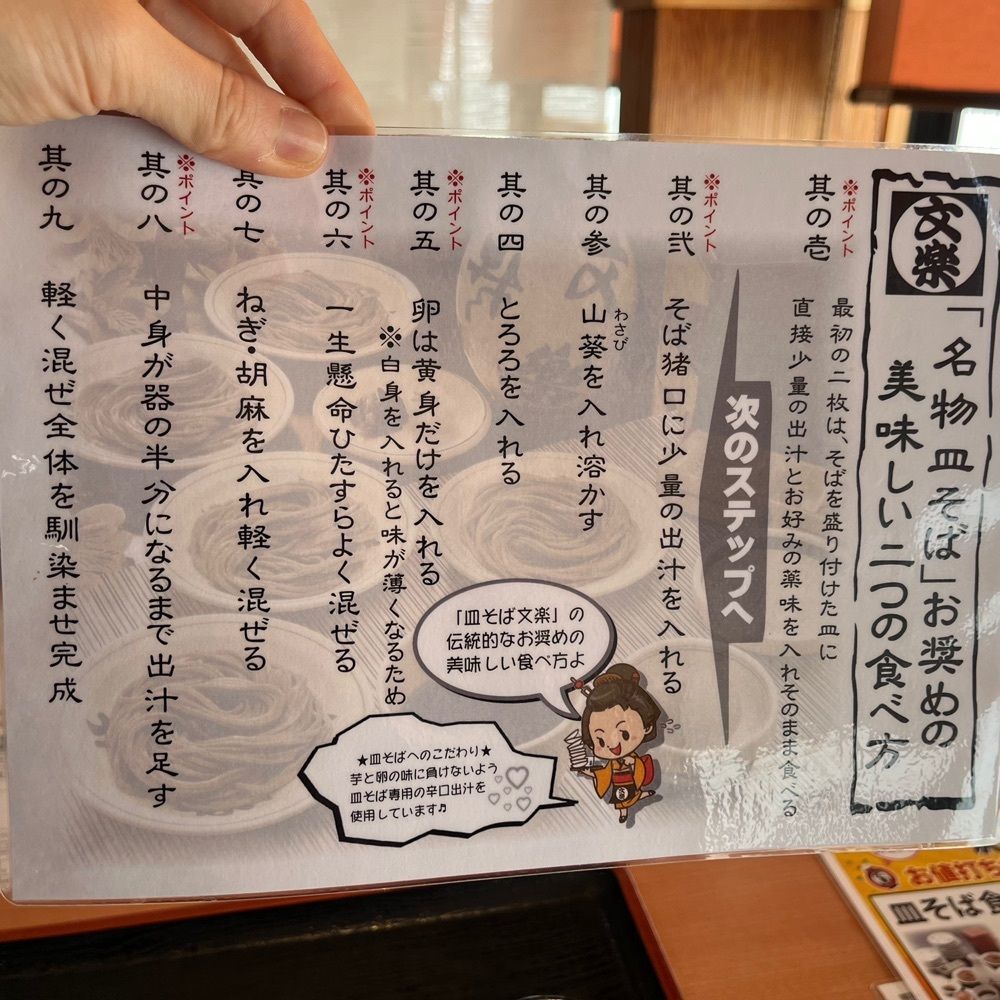 文楽
「名物皿そば」お奨めの
美味しい二つの食べ方
※ポイント
其の壱
最初の二枚は、そばを盛り付けた皿に
直接少量の出汁とお好みの薬味を入れそのまま食べる
次のステップへ
※ポイント
其の弐
そば猪口に少量の出汁を入れる
其の参
山葵を入れ溶かす
わさび
其の四
とろろを入れる
※ポイント
其の五
卵は黄身だけを入れる
※白身を入れると味が薄くなるため
※ポイント
其の六
一生懸命ひたすらよく混ぜる
其の七
ねぎ・胡麻を入れ軽く混ぜる
※ポイント
其の八
中身が器の半分になるまで出汁を足す
其の九
軽く混ぜ全体を馴染ませ完成
「皿そば文楽」の
伝統的なお奨めの
美味しい食べ方よ
★皿そばへのこだわり★
芋と卵の味に負けないよう
皿そば専用の辛口出汁を
使用しています♫
お値打ち
皿そば食